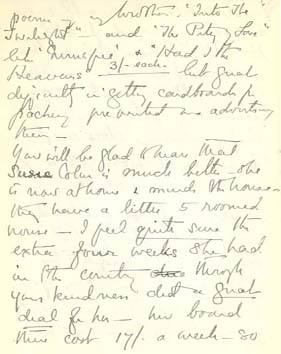 poems of my brother. "Into The
Twilight" - and "The Pity of Love"
but "Innisfree" & "Had I the
Heavens" 3/- each - but great
difficulty in getting cardboards for
packing prevented me advertising
them -
You will be glad to hear that
Susie Colum is much better - she
is now at home & minds the house
they have a little 5 roomed
house - I feel quite sure the
extra four weeks she had
in the country through
your kindness did a great
deal for her - her board
there cost 17/- a week - so